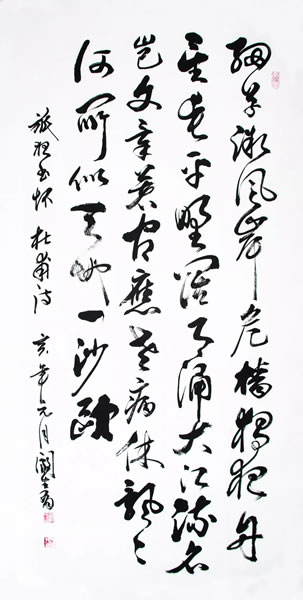 細草微風岸危檣獨夜舟
星垂平野闊月涌大江流名
岂文章著官應老病休飄々
何所似天地一沙鷗
旅夜书怀 杜甫诗 亥年元月